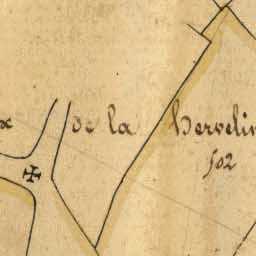 de la Hervelin
502